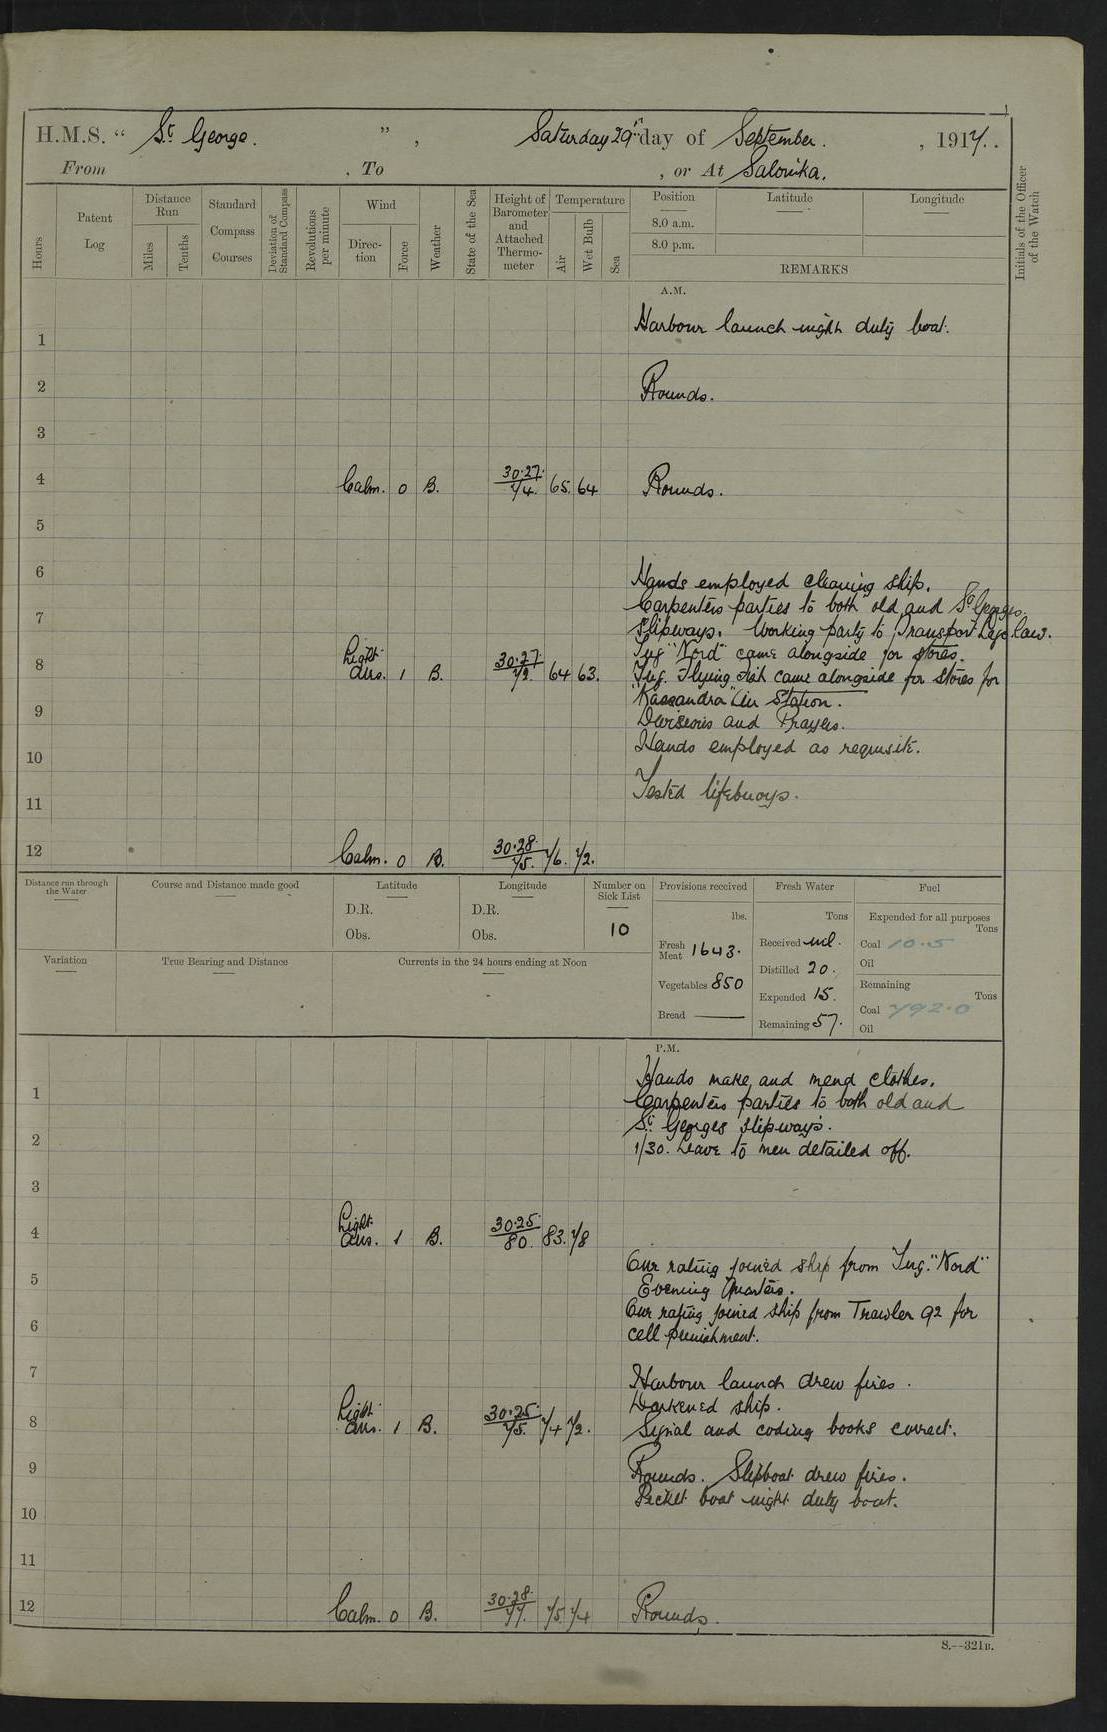 H.M.S. “ St George. ”, Saturday 29th day of September. , 1917.
From , To , or At Salonika.
Hours
Patent Log
Distance Run
Miles
Tenths
Standard Compass Courses
Deviation of Standard Compass
Revolutions per minute
Wind
Direc-tion
Force
Weather
State of the Sea
Height of Barometer and Attached Thermo-meter
Temperature
Air
Wet Bulb
Sea
Position
8.0 a.m.
8.0 p.m.
Latitude
Longitude
REMARKS
Initials of the Officer of the Watch
A.M.
1 Harbour launch night duty boat.
2 Rounds.
3
4 Calm. 0 B. 30.27. 74. 65. 64 Rounds.
5
6 Hands employed cleaning ship.
Carpenters parties to both old and St Georges
7 Slipways. Working party to Transport
8 Light airs. 1 B. 30.27 72. 64 63. Tug "Nord" came alongside for stores.
Tug. Flying Fish came alongside for stores for
"Kassandra" Air Station.
9 Divisions and Prayers.
Hands employed as requisite.
10
Tested lifebuoys.
11
12 Calm. 0 B. 30.28. 75. 76. 72.
Distance run through the Water
Course and Distance made good
Latitude
D.R.
Obs.
Longitude
D.R.
Obs.
Number on Sick List
10
Provisions received
lbs.
Fresh Meat 1643.
Vegetables 850
Bread ——
Fresh Water
Tons
Received nil.
Distilled 20.
Expended 15.
Remaining 57.
Fuel
Expended for all purposes
Tons
Coal 10.5
Oil
Remaining
Tons
Coal 792.0
Oil
Variation
True Bearing and Distance
Currents in the 24 hours ending at Noon
P.M.
Hands make and mend clothes.
1 Carpenters parties to both old and
St Georges slipways.
2 1/30. Leave to men detailed off.
3
4 Light airs. 1 B. 30.25 80. 83. 78
Our rating joined ship from Tug. "Nord"
5 Evening Quarters.
Our rating joined ship from Trawler 92 for
6 cell punishment.
7 Harbour launch drew fires.
Darkened ship.
8 Light airs. 1 B. 30.25. 75. 74 72. Signal and coding books correct.
9 Rounds. Slipboat drew fires.
Picket boat night duty boat.
10
11
12 Calm. 0 B. 30.28. 77. 75. 74 Rounds.
S.—321B.